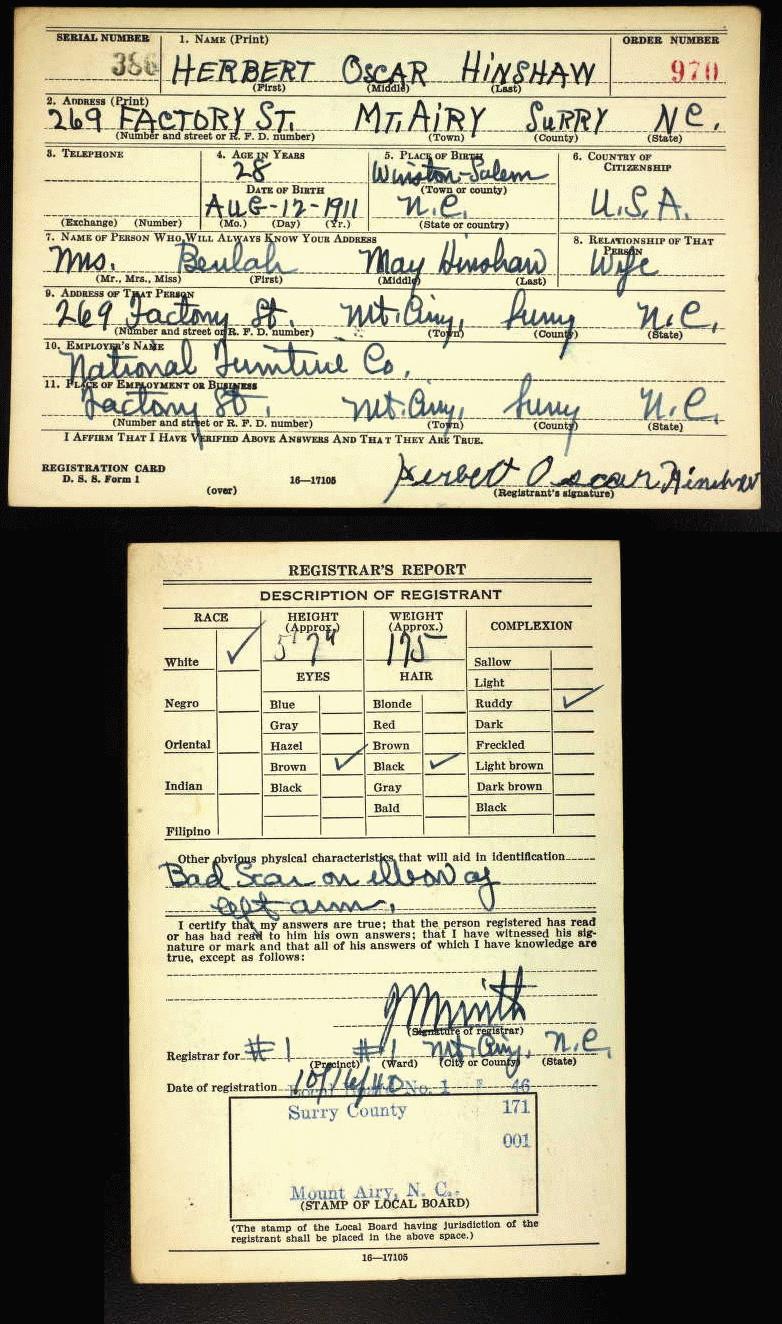 SERIAL NUMBER 1. NAME (Print) ORDER NUMBER
386 HERBERT OSCAR HINSHAW 970
(First) (Middle) (Last)
2. ADDRESS (Print)
269 FACTORY ST. MT. AIRY SURRY N C.
(Number and street or R. F. D. number) (Town) (County) (State)
3. TELEPHONE 4. AGE IN YEARS 5. PLACE OF BIRTH 6. COUNTRY OF
28 Winston-Salem CITIZENSHIP
DATE OF BIRTH (Town or county)
AUG-12-1911 N.C. U.S.A.
(Exchange) (Number) (Mo.) (Day) (Yr.) (State or country)
7. NAME OF PERSON WHO WILL ALWAYS KNOW YOUR ADDRESS 8. RELATIONSHIP OF THAT
PERSON
Mrs. Beulah May Hinshaw Wife
(Mr., Mrs., Miss) (First) (Middle) (Last)
9. ADDRESS OF THAT PERSON
269 Factory St. Mt. Airy, Surry N.C.
(Number and street or R. F. D. number) (Town) (County) (State)
10. EMPLOYER'S NAME
National Furniture Co.
11. PLACE OF EMPLOYMENT OR BUSINESS
Factory St. Mt. Airy, Surry N.C.
(Number and street or R. F. D. number) (Town) (County) (State)
I AFFIRM THAT I HAVE VERIFIED ABOVE ANSWERS AND THAT THEY ARE TRUE.
REGISTRATION CARD Herbert Oscar Hinshaw
D. S. S. Form 1 16—17105 (Registrant's signature)
(over)
REGISTRAR'S REPORT
DESCRIPTION OF REGISTRANT
RACE HEIGHT WEIGHT COMPLEXION
(Approx.) (Approx.)
5' 7" 175
White ✓ Sallow
EYES HAIR Light
Negro Blue Blonde Ruddy ✓
Gray Red Dark
Oriental Hazel Brown Freckled
Brown ✓ Black ✓ Light brown
Indian Black Gray Dark brown
Bald Black
Filipino
Other obvious physical characteristics that will aid in identification
Bad Scar on elbow of
left arm.
I certify that my answers are true; that the person registered has read
or has had read to him his own answers; that I have witnessed his sig-
nature or mark and that all of his answers of which I have knowledge are
true, except as follows:
(Signature of registrar)
Registrar for #1 #1 Mt. Airy, N.C.
(Precinct) (Ward) (City or County) (State)
Date of registration 10/16/40
Local Board No. 1 46
Surry County 171
001
Mount Airy, N. C.
(STAMP OF LOCAL BOARD)
(The stamp of the Local Board having jurisdiction of the
registrant shall be placed in the above space.)
16—17105